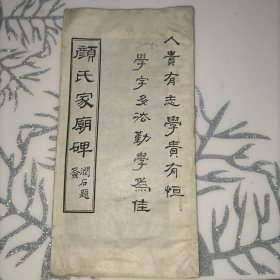 人貴有志學貴有恒
學字多法勤學爲佳
顏氏家廟碑
石題